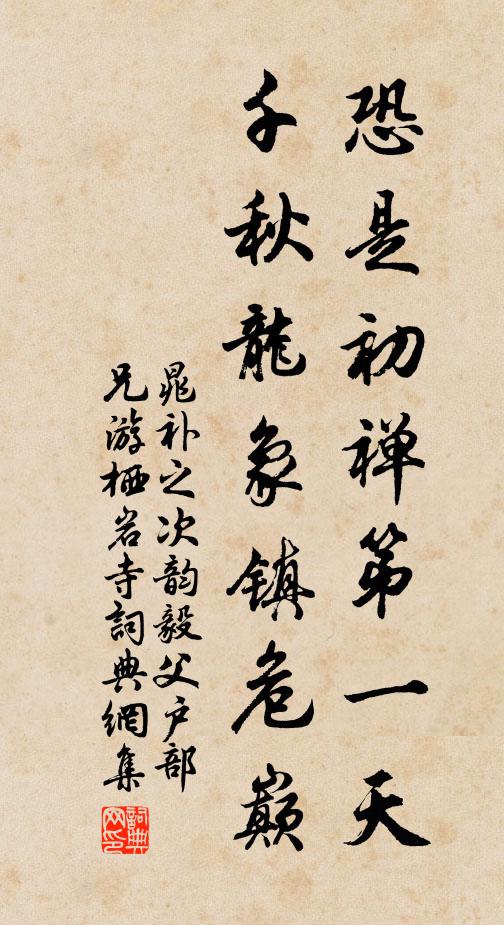 恐是初禅第一天
千秋龍象镇危巔
晁补之次韵毅父户部
兄游栖岩寺詞典網集
詞典
网印